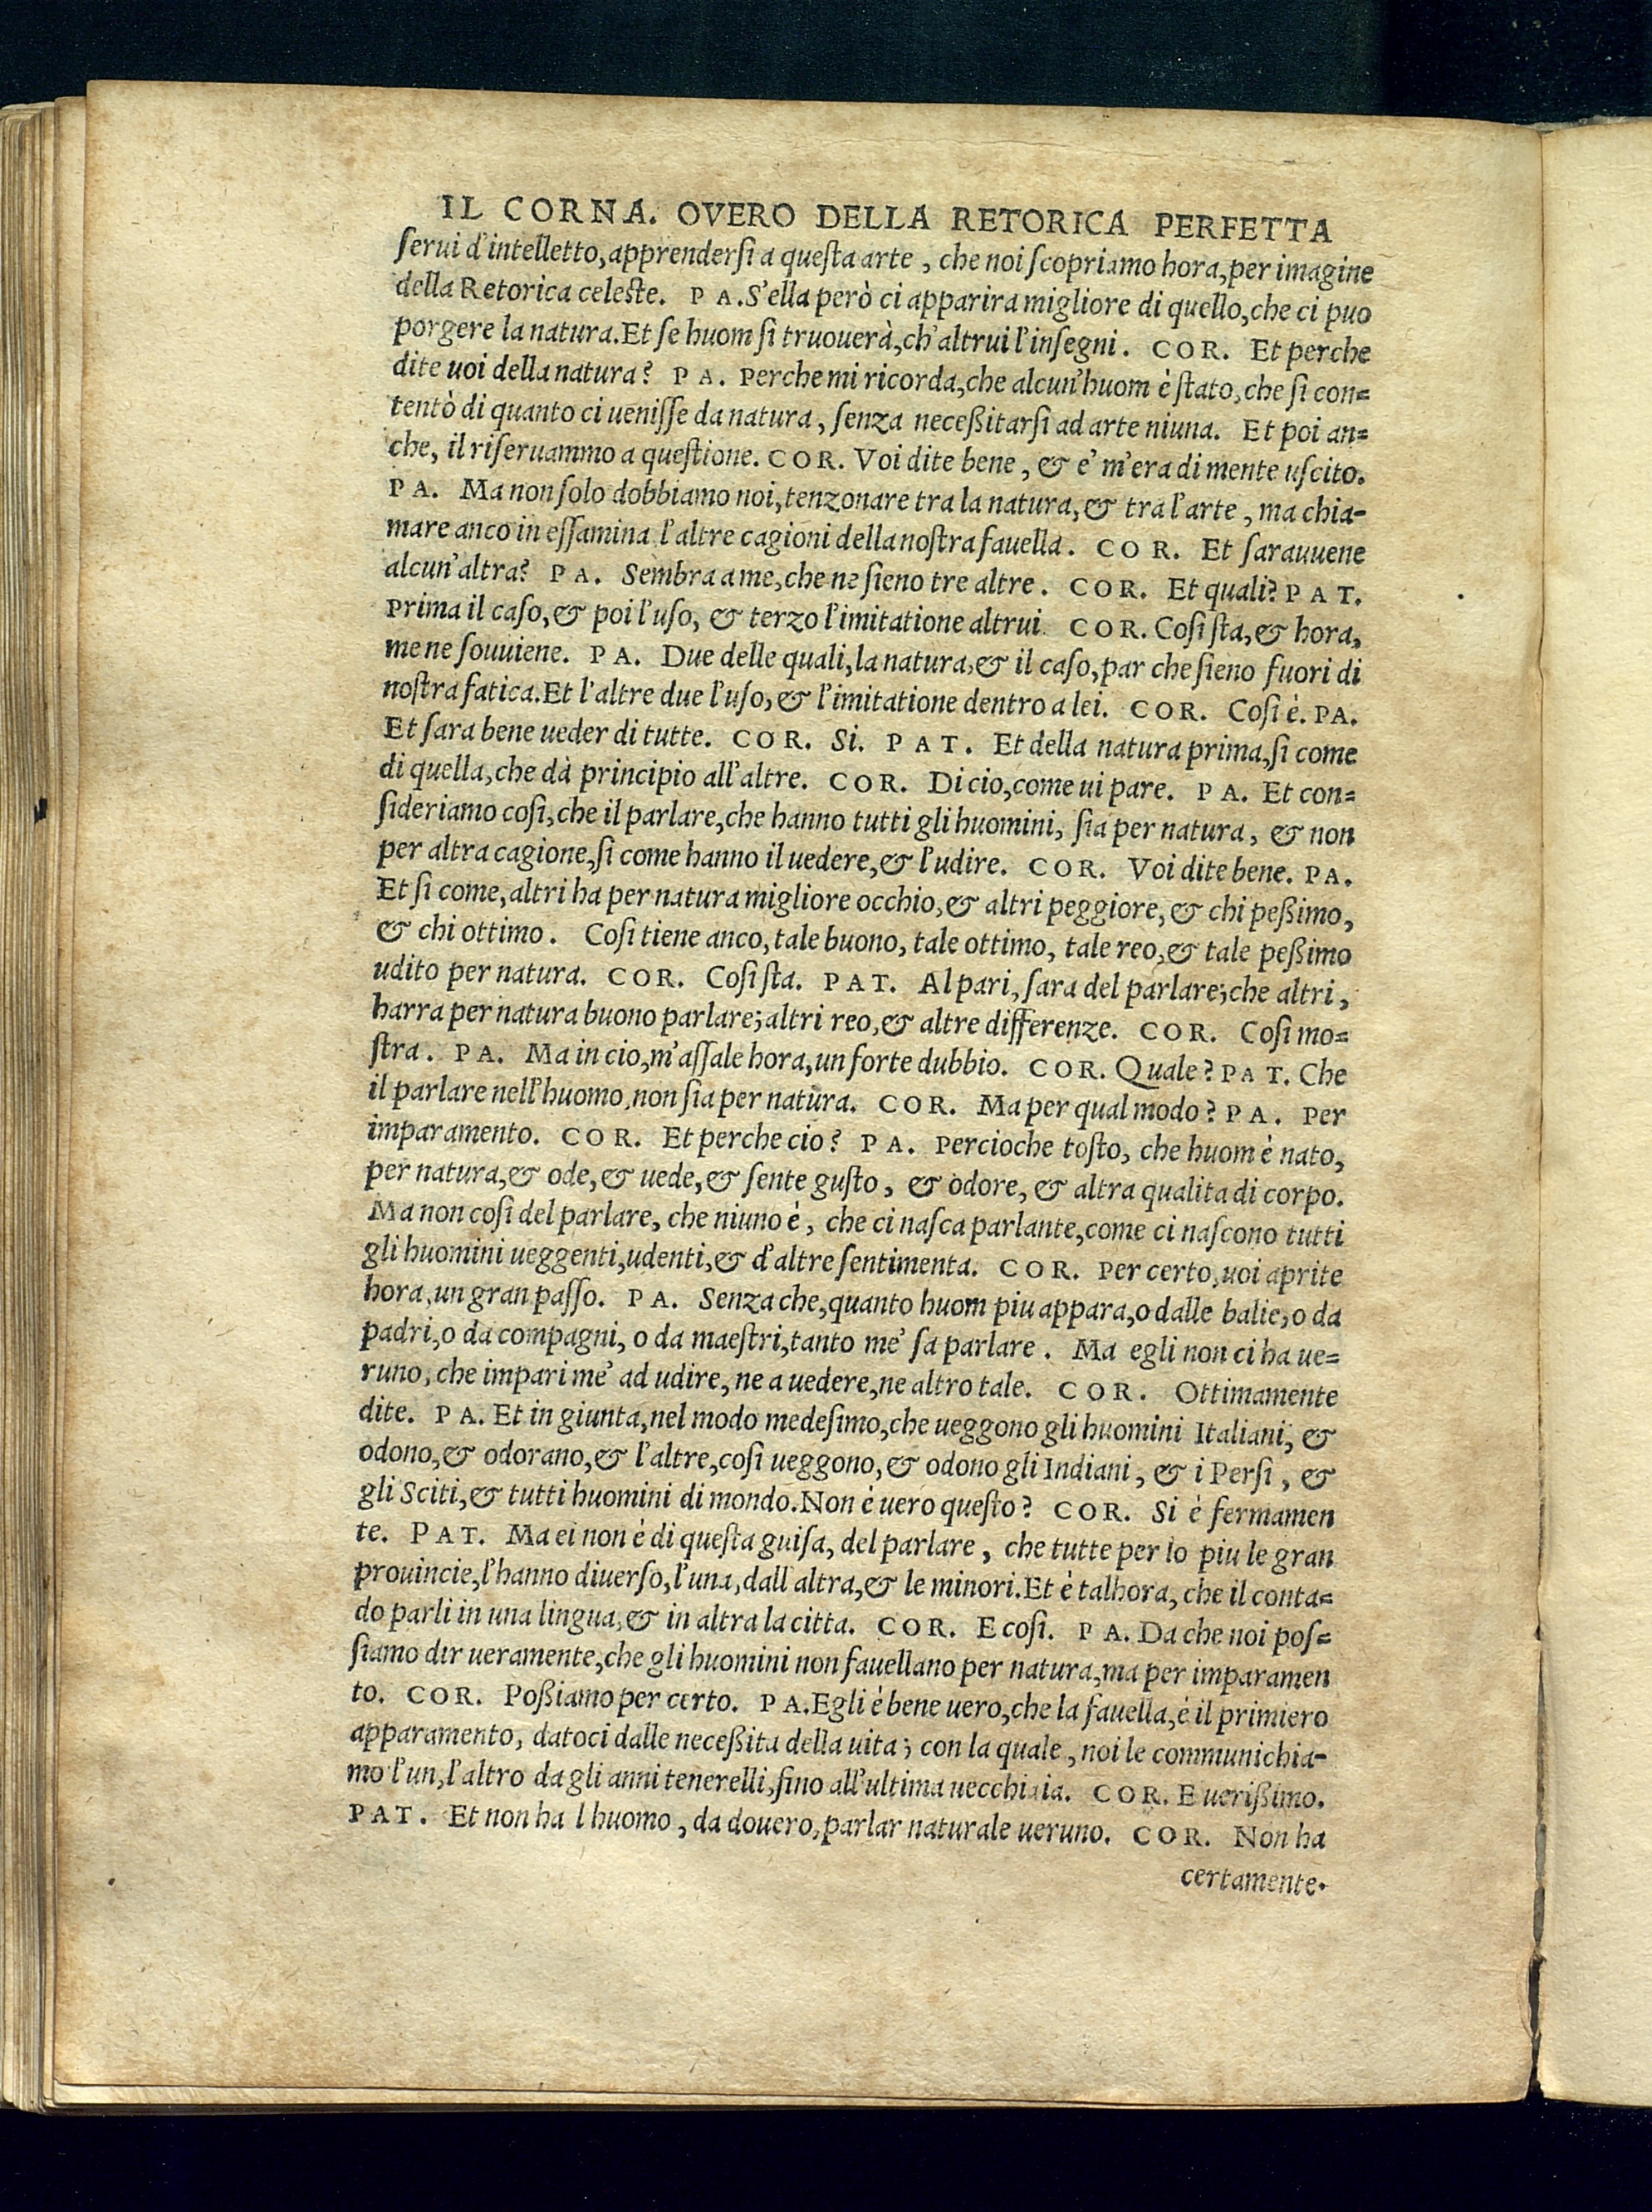 IL CORNA. OVERO DELLA RETORICA PERFETTA
ſerui d'intelletto, apprenderſi a queſta arte, che noi ſcopriamo hora, per imagine
della Retorica celeſte. P A. S'ella però ci apparira migliore di quello, che ci puo
porgere la natura. Et ſe huom ſi truouerà, ch'altrui l'inſegni. COR. Et perche
dite uoi della natura? P A. Perche mi ricorda, che alcun'huom è ſtato, che ſi con=
tentò di quanto ci ueniſſe da natura, ſenza neceßitarſi ad arte niuna. Et poi an=
che, il riſeruammo a queſtione. COR. Voi dite bene, & e' m'era di mente uſcito.
P A. Ma non ſolo dobbiamo noi, tenzonare tra la natura, & tra l'arte, ma chia-
mare anco in eſſamina l'altre cagioni della noſtra fauella. COR. Et ſarauuene
alcun'altra? P A. Sembra a me, che ne ſieno tre altre. COR. Et quali? P A T.
Prima il caſo, & poi l'uſo, & terzo l'imitatione altrui. COR. Coſi ſta, & hora,
me ne ſouuiene. P A. Due delle quali, la natura, & il caſo, par che ſieno fuori di
noſtra fatica. Et l'altre due l'uſo, & l'imitatione dentro a lei. COR. Coſi è. PA.
Et ſara bene ueder di tutte. COR. Si. P A T. Et della natura prima, ſi come
di quella, che dà principio all'altre. COR. Di cio, come ui pare. P A. Et con=
ſideriamo coſi, che il parlare, che hanno tutti gli huomini, ſia per natura, & non
per altra cagione, ſi come hanno il uedere, & l'udire. COR. Voi dite bene. PA.
Et ſi come, altri ha per natura migliore occhio, & altri peggiore, & chi peßimo,
& chi ottimo. Coſi tiene anco, tale buono, tale ottimo, tale reo, & tale peßimo
udito per natura. COR. Coſi ſta. PAT. Al pari, ſara del parlare; che altri,
harra per natura buono parlare; altri reo, & altre differenze. COR. Coſi mo=
ſtra. P A. Ma in cio, m'aſſale hora, un forte dubbio. COR. Quale? P A T. Che
il parlare nell'huomo, non ſia per natura. COR. Ma per qual modo? P A. Per
imparamento. COR. Et perche cio? P A. Percioche toſto, che huom è nato,
per natura, & ode, & uede, & ſente guſto, & odore, & altra qualita di corpo.
Ma non coſi del parlare, che niuno è, che ci naſca parlante, come ci naſcono tutti
gli huomini ueggenti, udenti, & d'altre ſentimenta. COR. Per certo, uoi aprite
hora, un gran paſſo. P A. Senza che, quanto huom piu appara, o dalle balie, o da
padri, o da compagni, o da maeſtri, tanto me' ſa parlare. Ma egli non ci ha ue=
runo, che impari me' ad udire, ne a uedere, ne altro tale. COR. Ottimamente
dite. P A. Et in giunta, nel modo medeſimo, che ueggono gli huomini Italiani, &
odono, & odorano, & l'altre, coſi ueggono, & odono gli Indiani, & i Perſi, &
gli Sciti, & tutti huomini di mondo. Non è uero queſto? COR. Si è fermamen
te. PAT. Ma ei non è di queſta guiſa, del parlare, che tutte per lo piu le gran
prouincie, l'hanno diuerſo, l'una, dall'altra, & le minori. Et è talhora, che il conta=
do parli in una lingua, & in altra la citta. COR. E coſi. P A. Da che noi poſ=
ſiamo dir ueramente, che gli huomini non fauellano per natura, ma per imparamen
to. COR. Poßiamo per certo. P A. Egli è bene uero, che la fauella, è il primiero
apparamento, datoci dalle neceßita della uita; con la quale, noi le communichia-
mo l'un, l'altro da gli anni tenerelli, fino all'ultima uecchiaia. COR. E uerißimo.
PAT. Et non ha l huomo, da douero, parlar naturale ueruno. COR. Non ha
certamente.